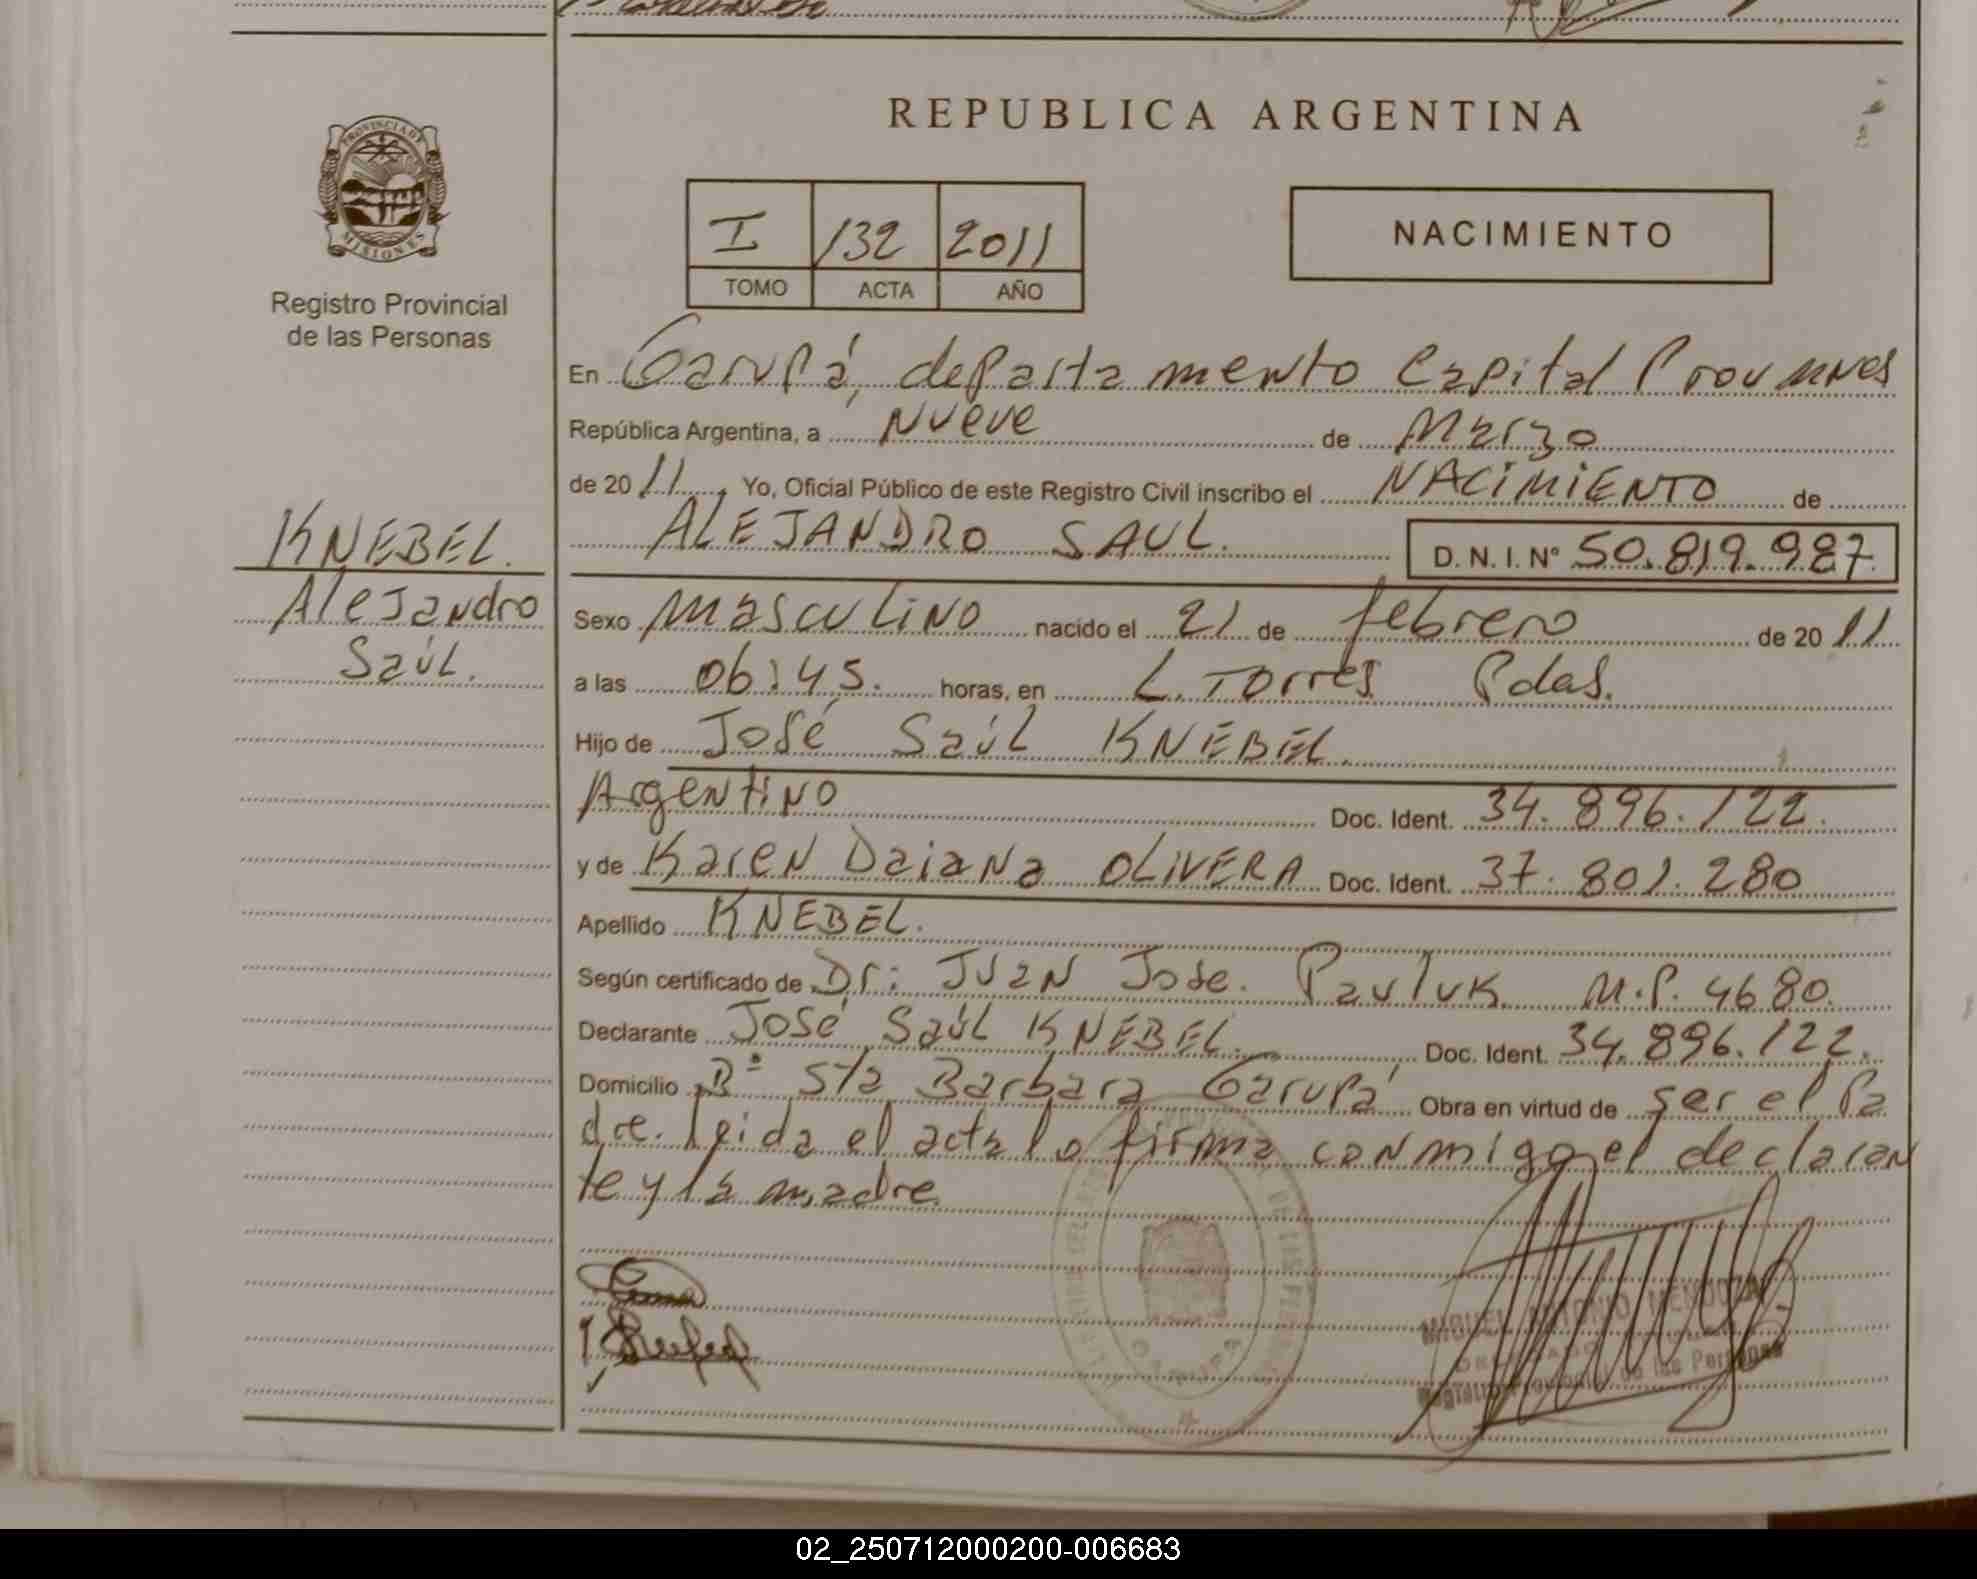 REPUBLICA ARGENTINA
PROVINCIA DE
MISIONES
Registro Provincial
de las Personas
I 132 2011
TOMO ACTA AÑO
NACIMIENTO
En Garupá, departamento Capital Prov
República Argentina, a nueve de Marzo
de 2011, Yo, Oficial Público de este Registro Civil inscribo el NACIMIENTO de
ALEJANDRO SAUL. D. N. I. N° 50.819.987.
KNEBEL.
Alejandro
Saúl.
Sexo masculino nacido el 21 de febrero de 2011
a las 06:45. horas, en L. Torres Pdas.
Hijo de José Saúl KNEBEL.
Argentino Doc. Ident. 34.896.122.
y de Karen Daiana OLIVERA Doc. Ident. 37.801.280
Apellido KNEBEL.
Según certificado de Dr: Juan Jose. Pauluk M.P. 4680.
Declarante José Saúl KNEBEL. Doc. Ident. 34.896.122.
Domicilio Bº Sta Barbara Garupá Obra en virtud de ser el Pa
dre. leida el acta lo firma conmigo el declaran
te y la madre.
GARUPA
MIGUEL ANTONIO MENDOZA
DELEGADO
Registro Provincial de las Personas
02_250712000200-006683